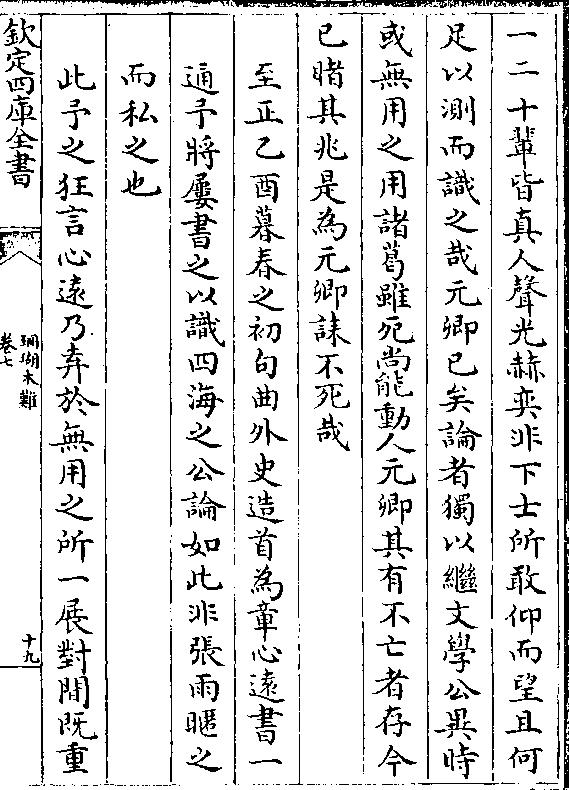 一二十輩皆真人聲光赫奕非下士所敢仰而望且何
足以測而識之哉元卿已矣論者獨以繼文學公異時
或無用之用諸葛雖死尚能動人元卿其有不亡者存今
已睹其兆是為元卿誄不死哉
至正乙酉暮春之初句曲外史造首為章心遠書一
通予將屢書之以識四海之公論如此非張雨暱之
而私之也
此予之狂言心遠乃弆於無用之所一展對間既重
欽定四庫全書
珊瑚木難
卷七
十九